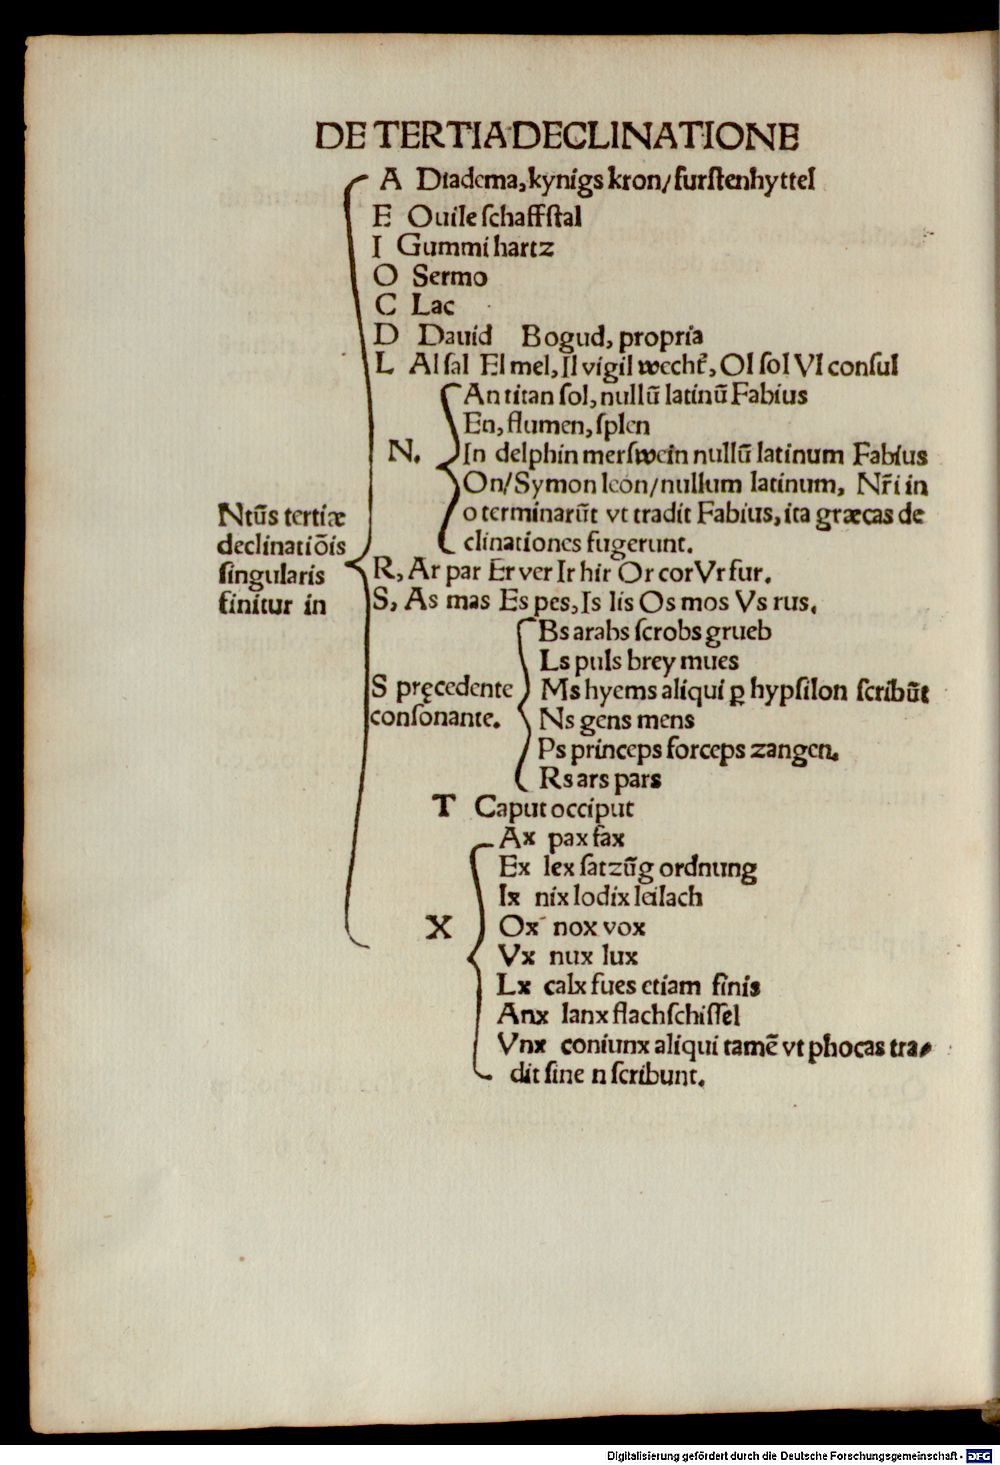 DE TERTIA DECLINATIONE
A Diadema, kynigs kron/ furſtenhyttel
E Ouile ſchaffſtal
I Gummi hartz
O Sermo
C Lac
D Dauid Bogud, propria
L Al ſal El mel, Il vigil wecht᷑, Ol ſol Vl conſul
An titan ſol, nullū latinū Fabius
En, flumen, ſplen
N. In delphin merſwein nullū latinum Fabius
On/ Symon leon/ nullum latinum, Nr̄i in
o terminarūt vt tradit Fabius, ita græcas de
clinationes fugerunt.
Ntūs tertiæ
declinatiōis
ſingularis
finitur in
R, Ar par Er ver Ir hir Or cor Vr fur.
S, As mas Es pes, Is lis Os mos Vs rus.
Bs arabs ſcrobs grueb
Ls puls brey mues
S pręcedente
conſonante.
Ms hyems aliqui ꝑ hypſilon ſcribūt
Ns gens mens
Ps princeps forceps zangen.
Rs ars pars
T Caput occiput
Ax pax fax
Ex lex ſatzūg ordnung
Ix nix lodix leilach
X Ox nox vox
Vx nux lux
Lx calx fues etiam finis
Anx lanx flachſchiſſel
Vnx coniunx aliqui tamē vt phocas tra-
dit ſine n ſcribunt.
Digitalisierung gefördert durch die Deutsche Forschungsgemeinschaft - DFG